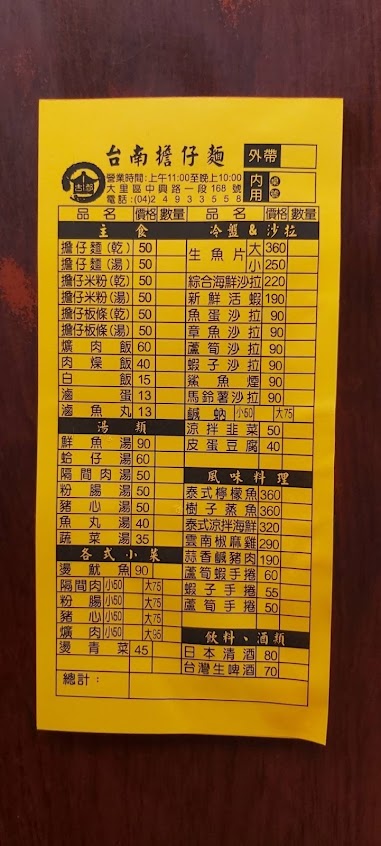 台南擔仔麵
外帶
營業時間:上午11:00至晚上10:00
大里區中興路一段168號
電話:(04)24933558
內用
桌號
品名 價格 數量
主食
擔仔麵(乾) 50
擔仔麵(湯) 50
擔仔米粉(乾) 50
擔仔米粉(湯) 50
擔仔板條(乾) 50
擔仔板條(湯) 50
爌肉飯 60
肉燥飯 40
白飯 15
滷蛋 13
滷魚丸 13
湯類
鮮魚湯 90
蛤仔湯 60
隔間肉湯 50
粉腸湯 50
豬心湯 50
魚丸湯 40
蔬菜湯 35
各式小菜
燙魷魚 90
隔間肉 小50 大75
粉腸 小50 大75
豬心 小50 大75
爌肉 小50 大95
燙青菜 45
總計:
品名 價格 數量
冷盤&沙拉
生魚片 大 360
小 250
綜合海鮮沙拉 220
新鮮活蝦 190
魚蛋沙拉 90
章魚沙拉 90
蘆筍沙拉 90
蝦子沙拉 90
鯊魚煙 90
馬鈴薯沙拉 90
鹹蚋 小50 大75
涼拌韭菜 50
皮蛋豆腐 40
風味料理
泰式檸檬魚 360
樹子蒸魚 360
泰式涼拌海鮮 320
雲南椒麻雞 290
蒜香鹹豬肉 190
蘆筍蝦手捲 60
蝦子手捲 55
蘆筍手捲 50
飲料、酒類
日本清酒 80
台灣生啤酒 70